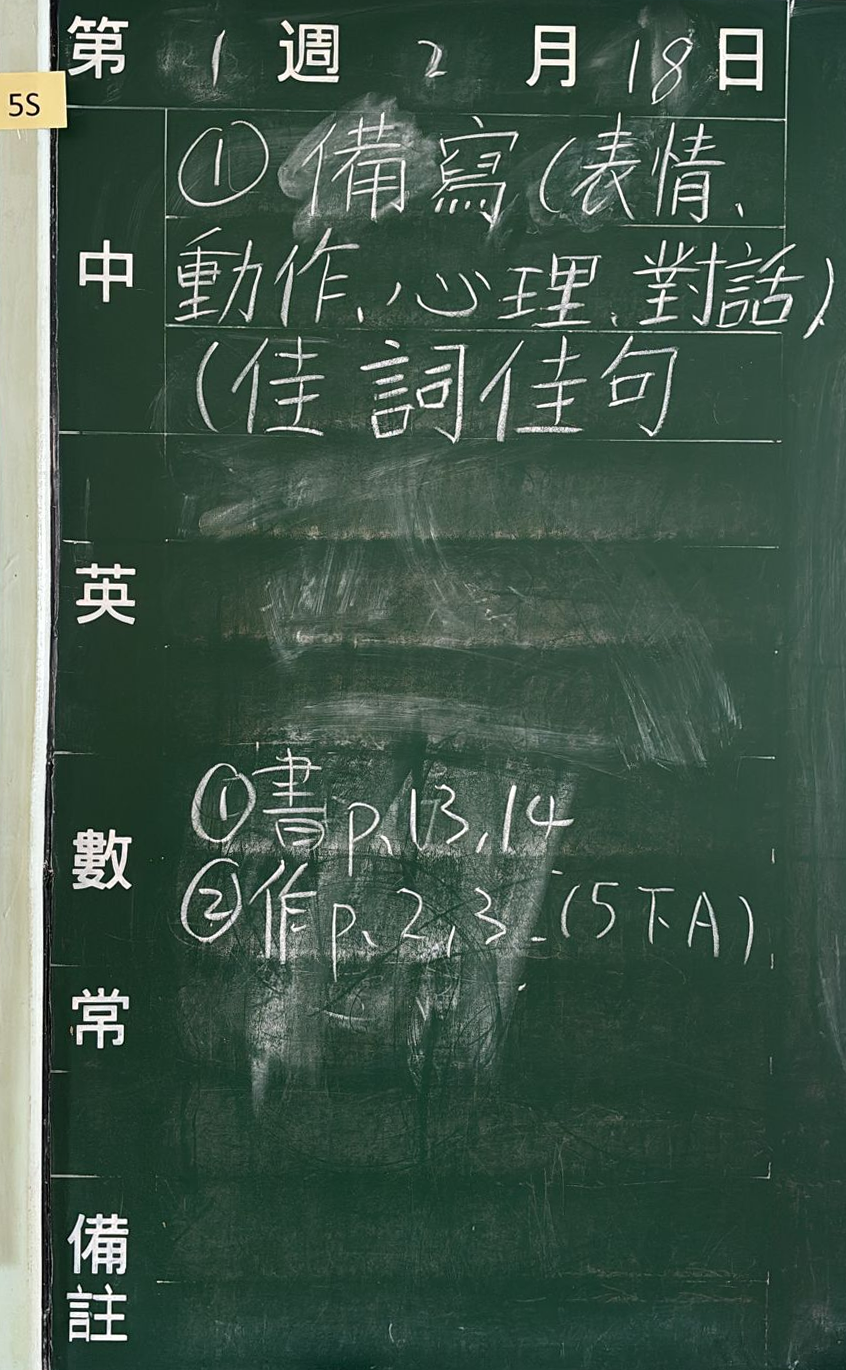 第 1 週 2 月 18 日
5S
中
① 備寫(表情、
動作、心理、對話)
(佳詞佳句
英
數
① 書p.13,14
② 作p.2,3 (5下A)
常
備註